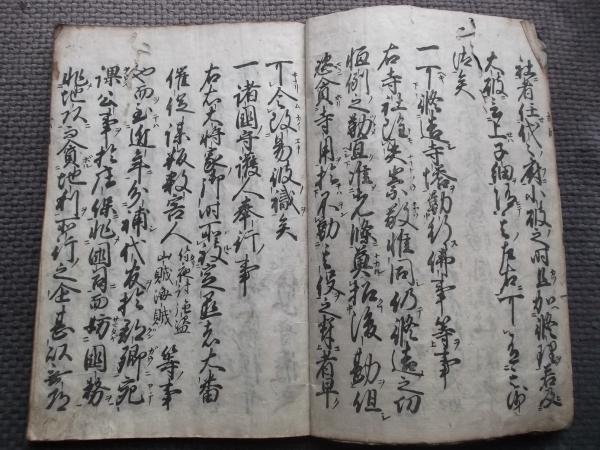 社者任代々符小破之時且加修理若及
大破言上子細随于左右可有其沙
汰矣
一可修造寺塔勤行佛事等事
右寺社雖異崇敬惟同仍修造之功
恒例之勤宜准先條莫招後勘但
恣貪寺用於不勤其役之輩者早
可令改易彼職矣
一諸國守護人奉行事
右右大将家御時所被定置者大番
催促謀叛殺害人付夜討強盗山賊海賊等事
也而至近年分補代官於郡郷宛
課公事於庄保非國司而妨國務
非地頭而貪地利所行之企甚以無道